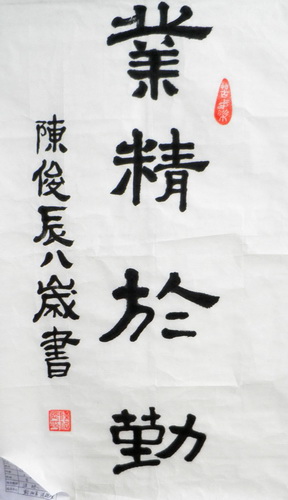 業精於勤
陳俊辰八歲書